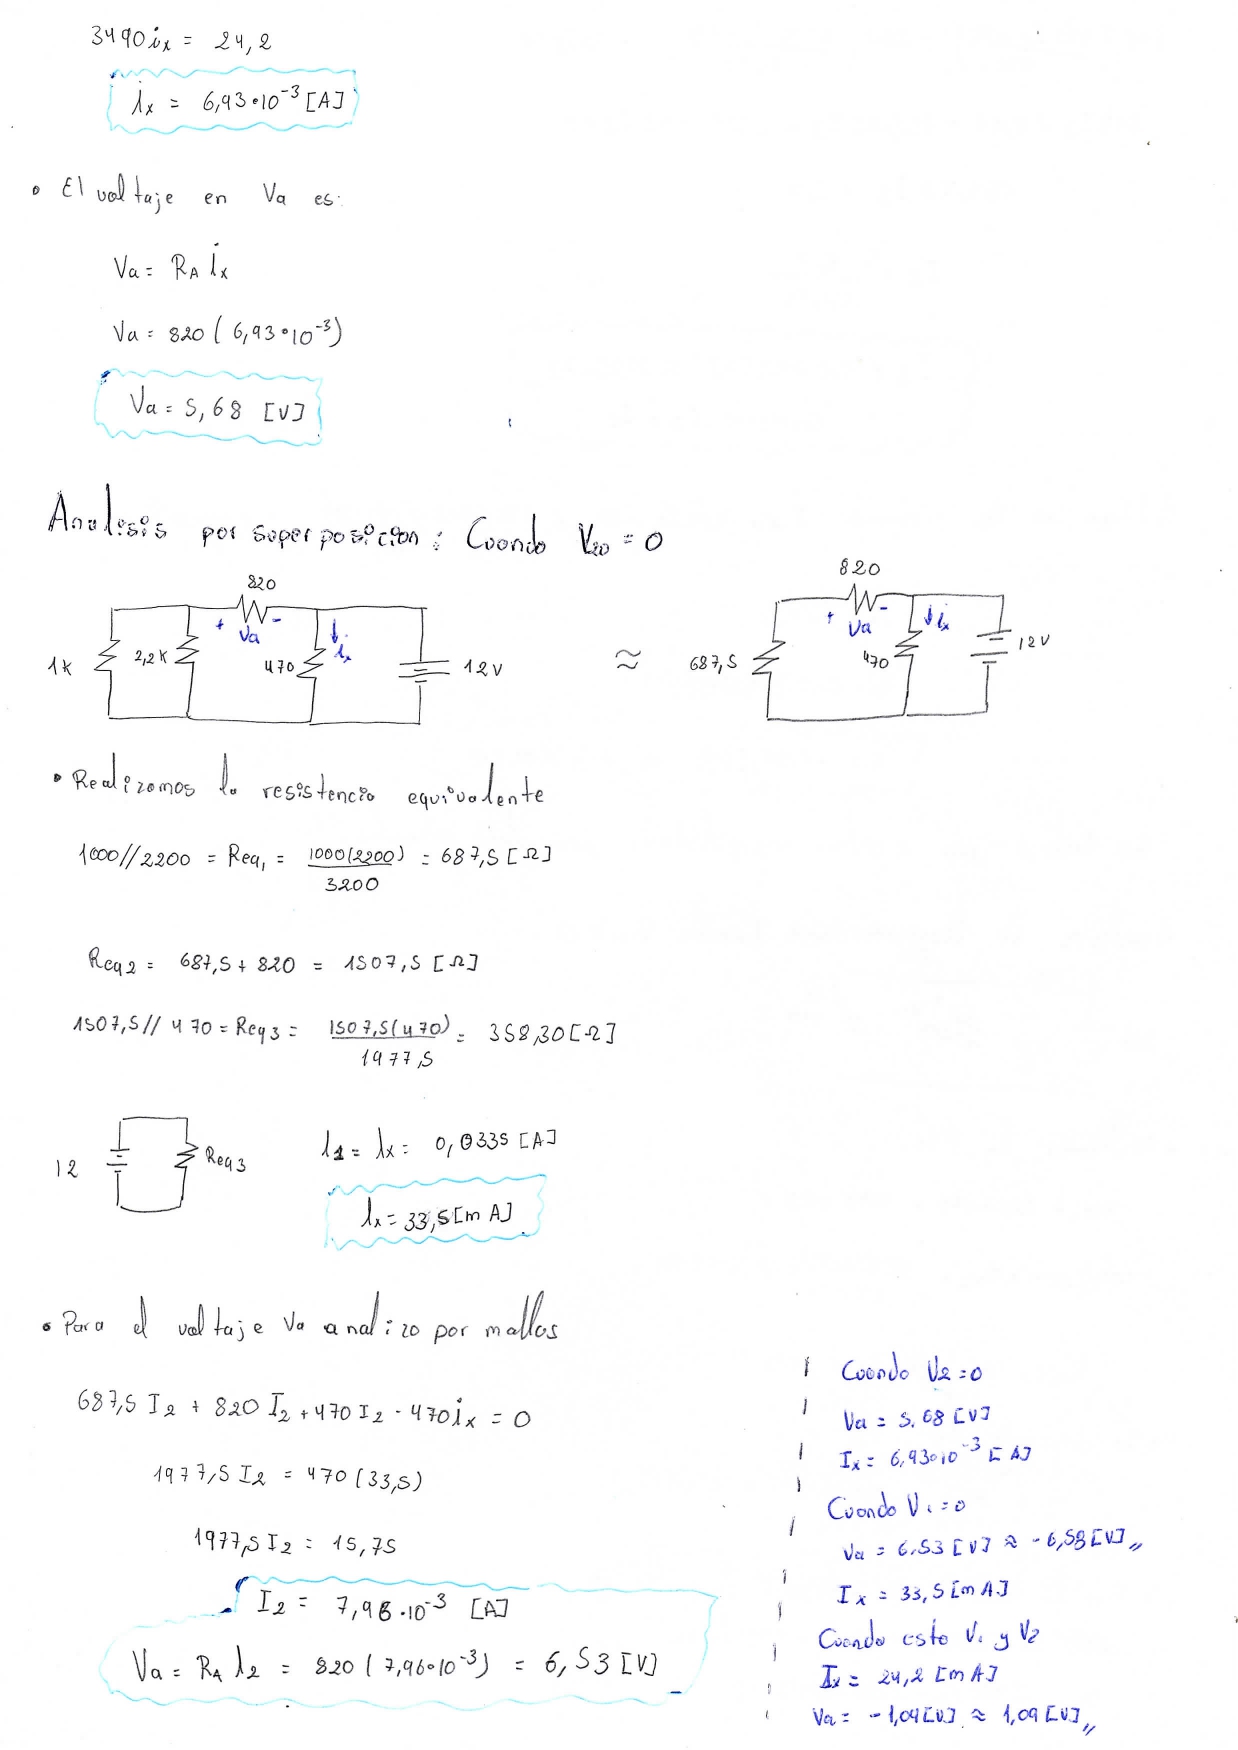 3490ix = 24,2
ix = 6,93•10⁻³ [A]
• El voltaje en Va es:
Va = RA ix
Va = 820 ( 6,93•10⁻³)
Va = 5,68 [V]
Analisis por superposicion : Cuando V20 = 0
820
+ Va -
1K
2,2K
470
ix
12V
≈
820
+ Va -
687,5
470
ix
12V
• Realizamos la resistencia equivalente
1000//2200 = Req1 = 1000(2200) / 3200 = 687,5 [Ω]
Req2 = 687,5 + 820 = 1507,5 [Ω]
1507,5// 470 = Req3 = 1507,5(470) / 1977,5 = 358,30 [Ω]
12
Req3
I1 = Ix = 0,0335 [A]
Ix = 33,5 [m A]
• Para el voltaje Va analizo por mallas
687,5 I2 + 820 I2 + 470 I2 - 470ix = 0
1977,5 I2 = 470 (33,5)
1977,5 I2 = 15,75
I2 = 7,96 .10⁻³ [A]
Va = RA I2 = 820 ( 7,96•10⁻³) = 6,53 [V]
Cuando V2 = 0
Va = 5,68 [V]
Ix = 6,93•10⁻³ [A]
Cuando V1 = 0
Va = 6,53 [V] ≈ -6,53 [V]„
Ix = 33,5 [m A]
Cuando esta V1 y V2
Ix = 24,2 [m A]
Va = -1,04 [V] ≈ 1,09 [V]„